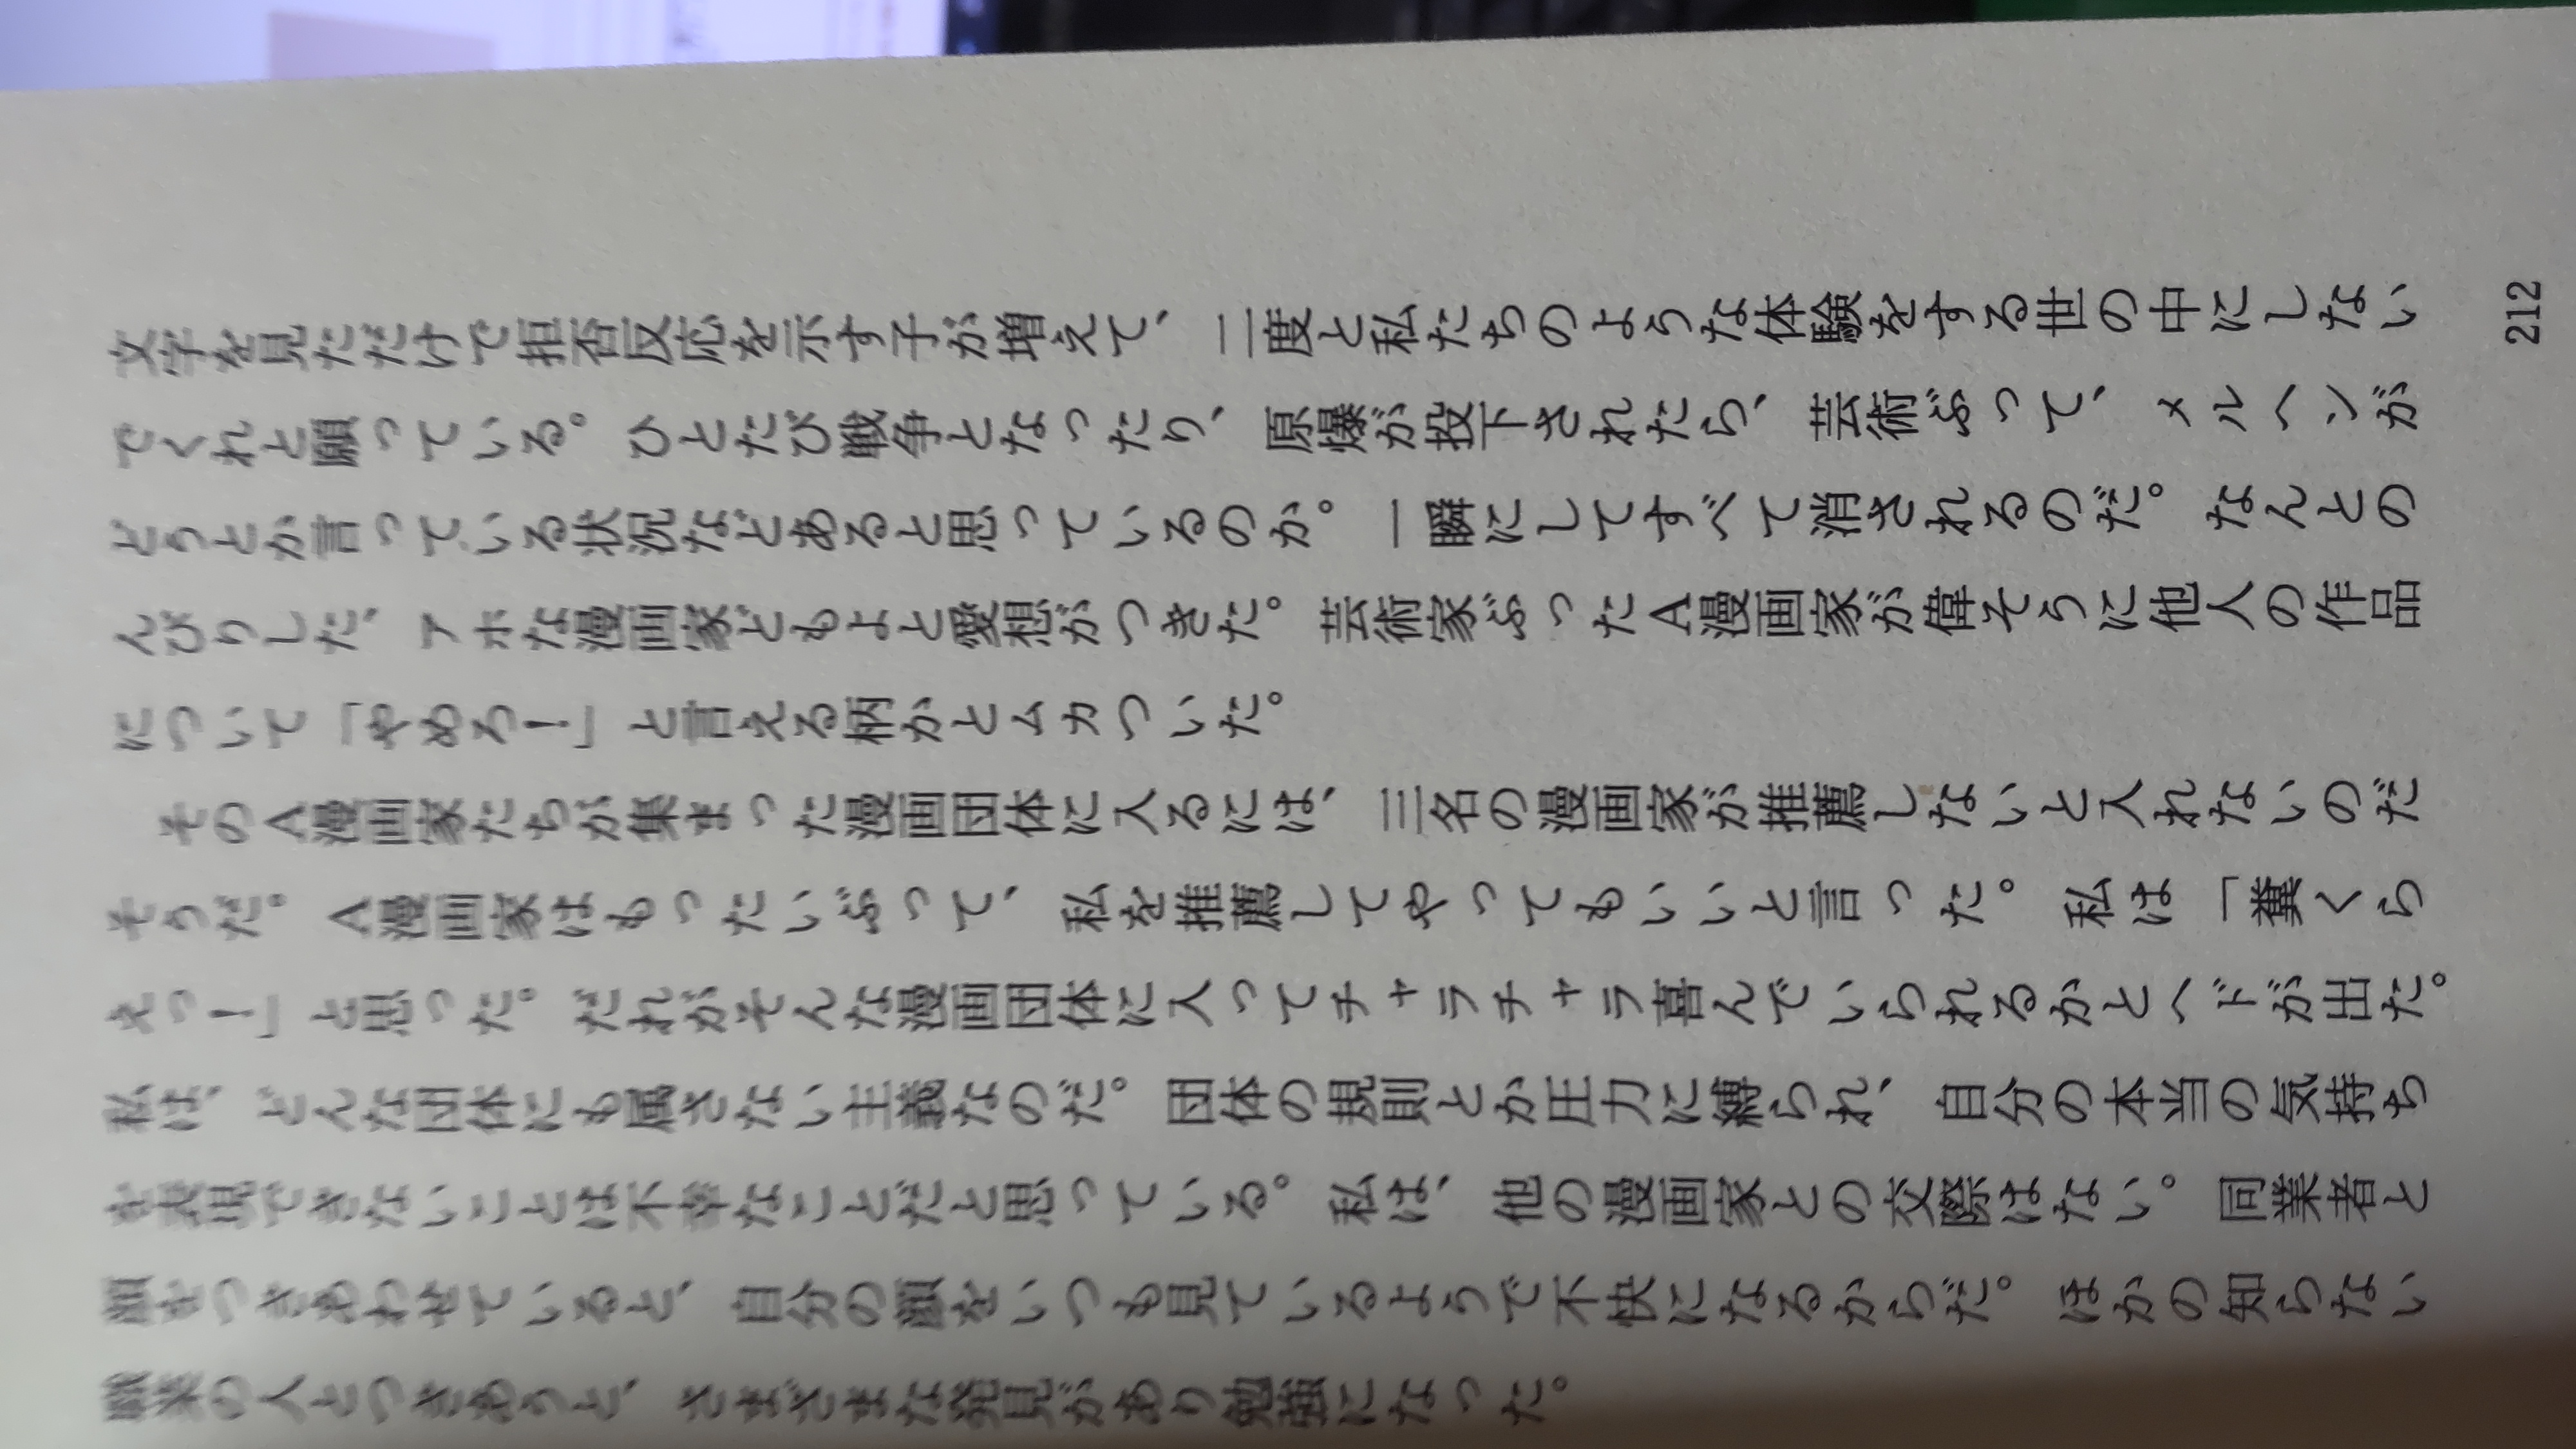 文字を見ただけで拒否反応を示す子が増えて、二度と私たちのような体験をする世の中にしない
でくれと願っている。ひとたび戦争となったり、原爆が投下されたら、芸術ぶって、メルヘンが
どうとか言っている状況などあると思っているのか。一瞬にしてすべて消されるのだ。なんとの
んびりした、アホな漫画家どもよと愛想がつきた。芸術家ぶったA漫画家が偉そうに他人の作品
について「やめろ!」と言える柄かとムカついた。
そのA漫画家たちが集まった漫画団体に入るには、三名の漫画家が推薦しないと入れないのだ
そうだ。A漫画家はもったいぶって、私を推薦してやってもいいと言った。私は「糞くら
えっ!」と思った。だれがそんな漫画団体に入ってチャラチャラ喜んでいられるかとヘドが出た。
私は、どんな団体にも属さない主義なのだ。団体の規則とか圧力に縛られ、自分の本当の気持ち
を表現できないことは不幸なことだと思っている。私は、他の漫画家との交際はない。同業者と
顔をつきあわせていると、自分の顔をいつも見ているようで不快になるからだ。ほかの知らない
職業の人とつきあうと、さまざまな発見があり勉強になった。
212